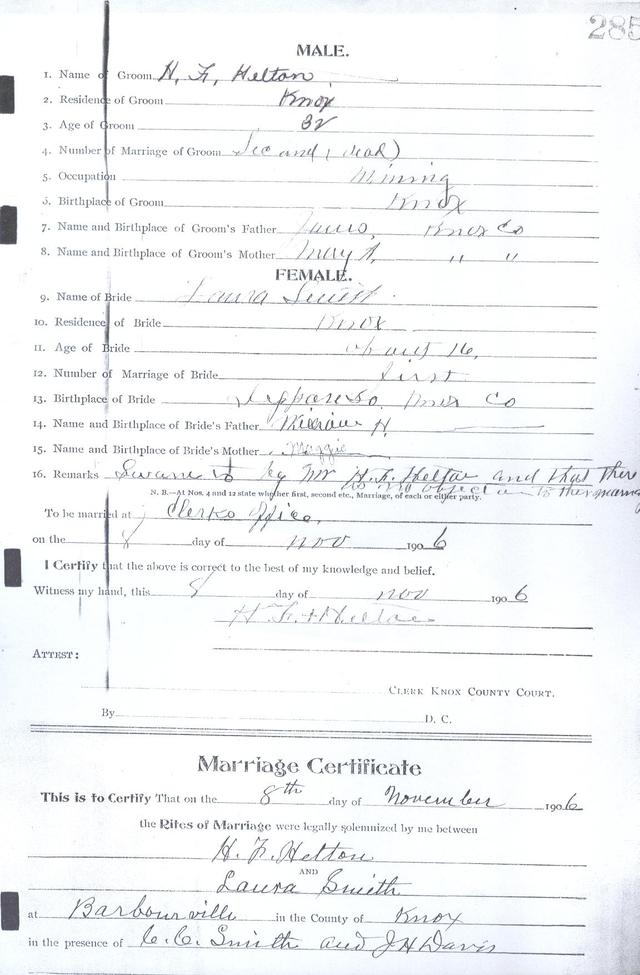 285
MALE.
1. Name of Groom H. F. Helton
2. Residence of Groom Knox
3. Age of Groom 32
4. Number of Marriage of Groom Second (dead)
5. Occupation Mining
6. Birthplace of Groom Knox
7. Name and Birthplace of Groom's Father James, Knox Co
8. Name and Birthplace of Groom's Mother Mary A, " "
FEMALE.
9. Name of Bride Laura Smith
10. Residence of Bride Knox
11. Age of Bride about 16,
12. Number of Marriage of Bride first
13. Birthplace of Bride Knox Co
14. Name and Birthplace of Bride's Father William H.
15. Name and Birthplace of Bride's Mother Maggie
16. Remarks to by Mr H. F. Helton and that there
is no to the
N. B.—At Nos. 4 and 12 state whether first, second etc., Marriage, of each or either party.
To be married at Clerks Office,
on the 8 day of Nov 1906
I Certify that the above is correct to the best of my knowledge and belief.
Witness my hand, this 8 day of Nov 1906
H. F. Helton
ATTEST:
CLERK KNOX COUNTY COURT.
By D. C.
Marriage Certificate
This is to Certify That on the 8th day of November 1906
the Rites of Marriage were legally solemnized by me between
H. F. Helton
AND
Laura Smith
at Barbourville in the County of Knox
in the presence of C. C. Smith and J H Davis